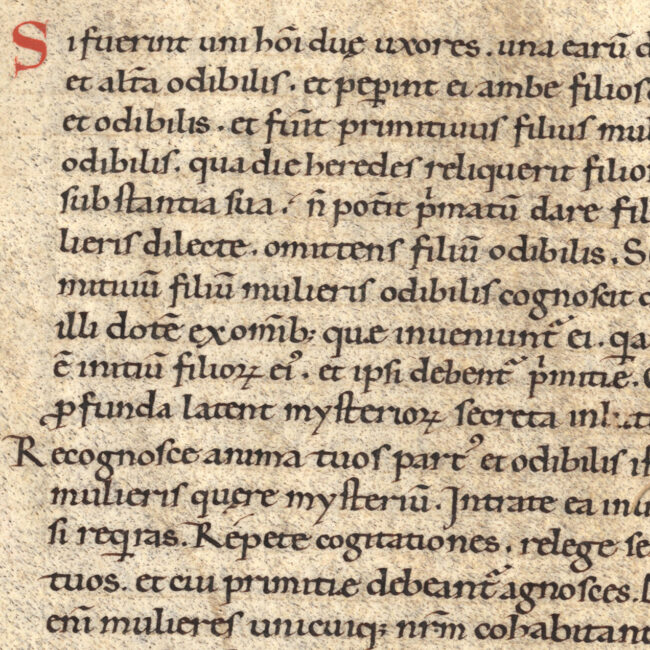 Si fuerint uni hōi duę uxores . una earū d
et alt̄a odibilis . et pepint ei ambe filios
et odibilis . et fuīt primitiuus filius mul
odibilis . qua die heredes reliquerit filio
substantia sua . n̄ pot̄it pͥmatū dare fil
lieris dilecte . omittens filiū odibilis . S
mitiuū filiū mulieris odibilis cognoscit
illi dotē ex om̄ib; que inueniunt᷑ ei . qͣ
ē initiū filioꝝ eiꝰ . et ipsi debent᷑ pͥmitię .
ꝓfunda latent mysterioꝝ secreta in
Recognosce anima tuos partꝰ et odibilis
mulieris quęre mysteriū . Intrate ea
si reqͥras . Repete cogitationes . relege se
tuos . et cui primitię debeant᷑ agnosces .
eni mulieres unicuiq; nrm̄ cohabitant